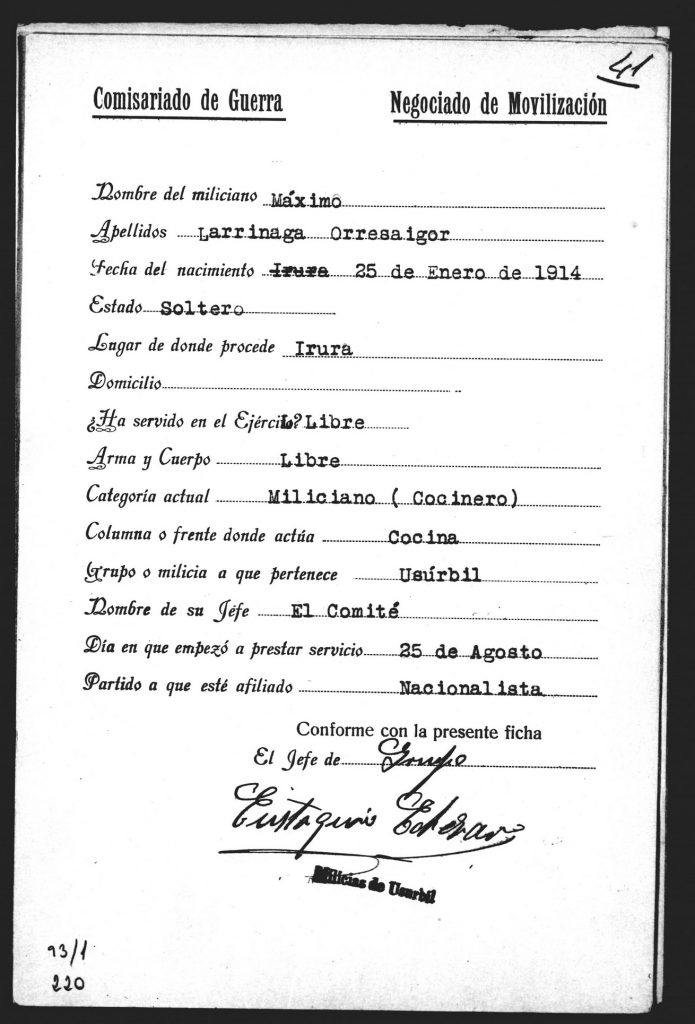 41
Comisariado de Guerra Negociado de Movilización
Nombre del miliciano Máximo
Apellidos Larrinaga Orresaigor
Fecha del nacimiento Irura 25 de Enero de 1914
Estado Soltero
Lugar de donde procede Irura
Domicilio
¿Ha servido en el Ejército? Libre
Arma y Cuerpo Libre
Categoría actual Miliciano ( Cocinero)
Columna o frente donde actúa Cocina
Grupo o milicia a que pertenece Usúrbil
Nombre de su Jefe El Comité
Día en que empezó a prestar servicio 25 de Agosto
Partido a que esté afiliado Nacionalista
Conforme con la presente ficha
El Jefe de Grupo
Eustaquio
Milicias de Usurbil
93/1
220